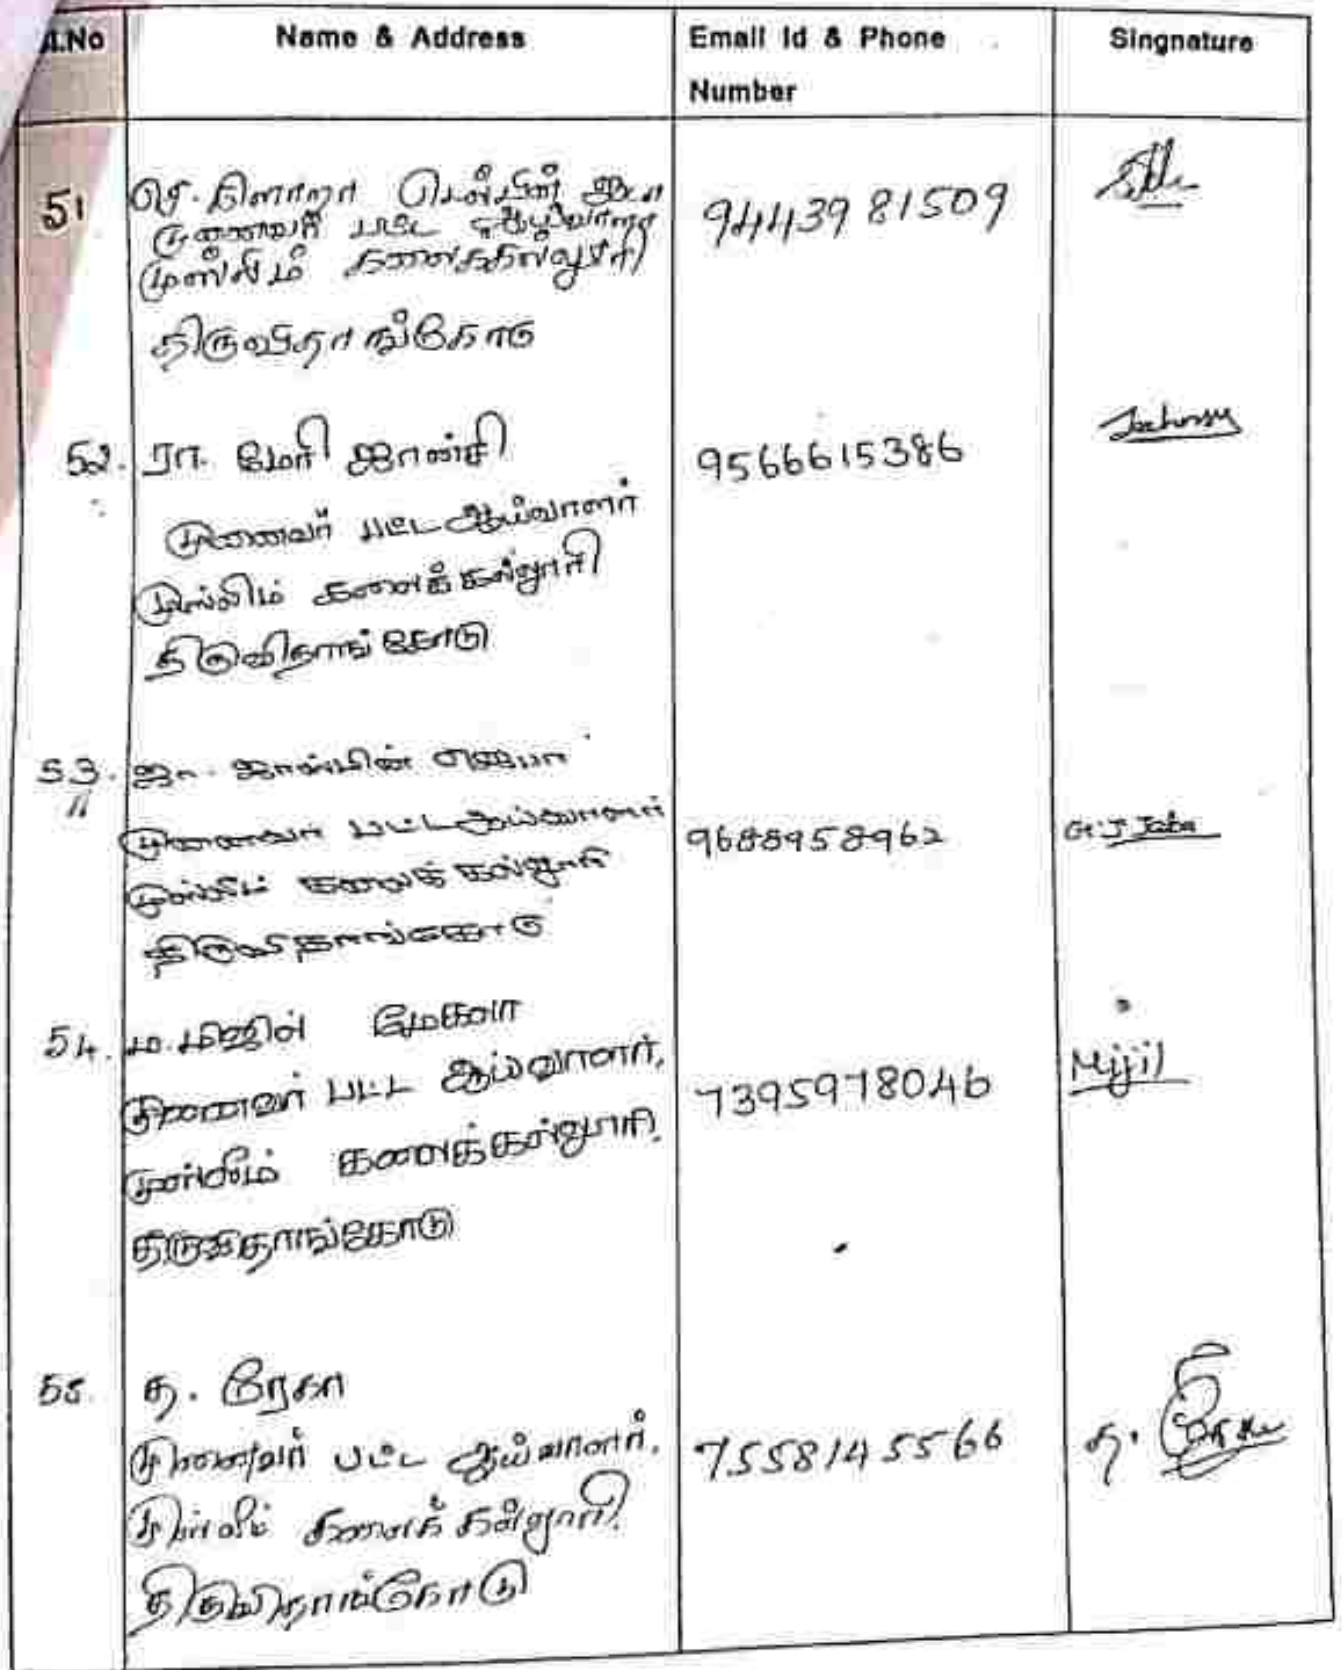 Sl.No Name & Address Email Id & Phone Number Singnature
51
முனைவர் பட்ட ஆய்வாளர்
முஸ்லிம் கலைக்கல்லூரி
திருவிதாங்கோடு
9443981509
52. ரா. மேரி ஜான்சி
முனைவர் பட்ட ஆய்வாளர்
முஸ்லிம் கலைக் கல்லூரி
திருவிதாங்கோடு
9566615386
53. ஜா. ஜாஸ்மின்
முனைவர் பட்ட ஆய்வாளர்
முஸ்லிம் கலைக் கல்லூரி
திருவிதாங்கோடு
9688958962
54. ம. மிஜில் மேகலா
முனைவர் பட்ட ஆய்வாளர்,
முஸ்லிம் கலைக்கல்லூரி,
திருவிதாங்கோடு
7395978046
Mijjil
55. த. ரேகா
முனைவர் பட்ட ஆய்வாளர்,
முஸ்லீம் கலைக் கல்லூரி,
திருவிதாங்கோடு
7558145566
த. ரேகா